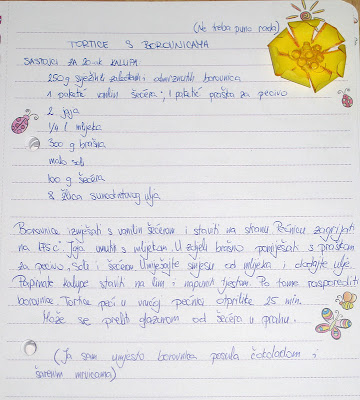 (Ne treba puno rada)
TORTICE S BOROVNICAMA
SASTOJCI ZA 20-ak KALUPA
250g svježih ili odmrznutih borovnica
1 paketić vanilin šećera; 1 paketić praška za pecivo
2 jaja
1/4 l mlijeka
300 g brašna
malo soli
100 g šećera
8 žlica suncokretovog ulja
Borovnice izmješati s vanilin šećerom i staviti na stranu. Pećnicu zagrijati
na 175C° Jaja umutiti s mlijekom. U zdjeli brašno pomiješati s praškom
za pecivo, soli i šećerom. Umiješajte smjesu od mlijeka i dodajte ulje.
Papirnate kalupe staviti na lim i napuniti tjestom. Po tome rasporediti
borovnice. Tortice peći u vrućoj pećnici otprilike 25 min.
Može se preliti glazurom od šećera u prahu.
(Ja sam umjesto borovnica posula čokoladom i
šarenim mrvicama)